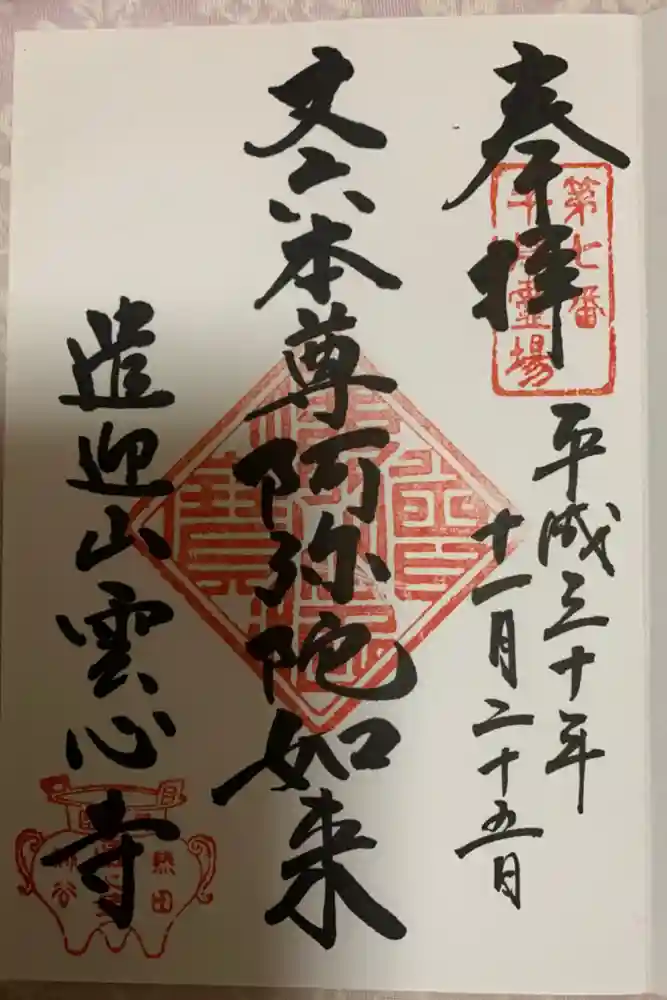 奉拝
第七番
靈場
平成三十年
十一月二十五日
丈六本尊阿弥陀如来
遣迎山雲心寺